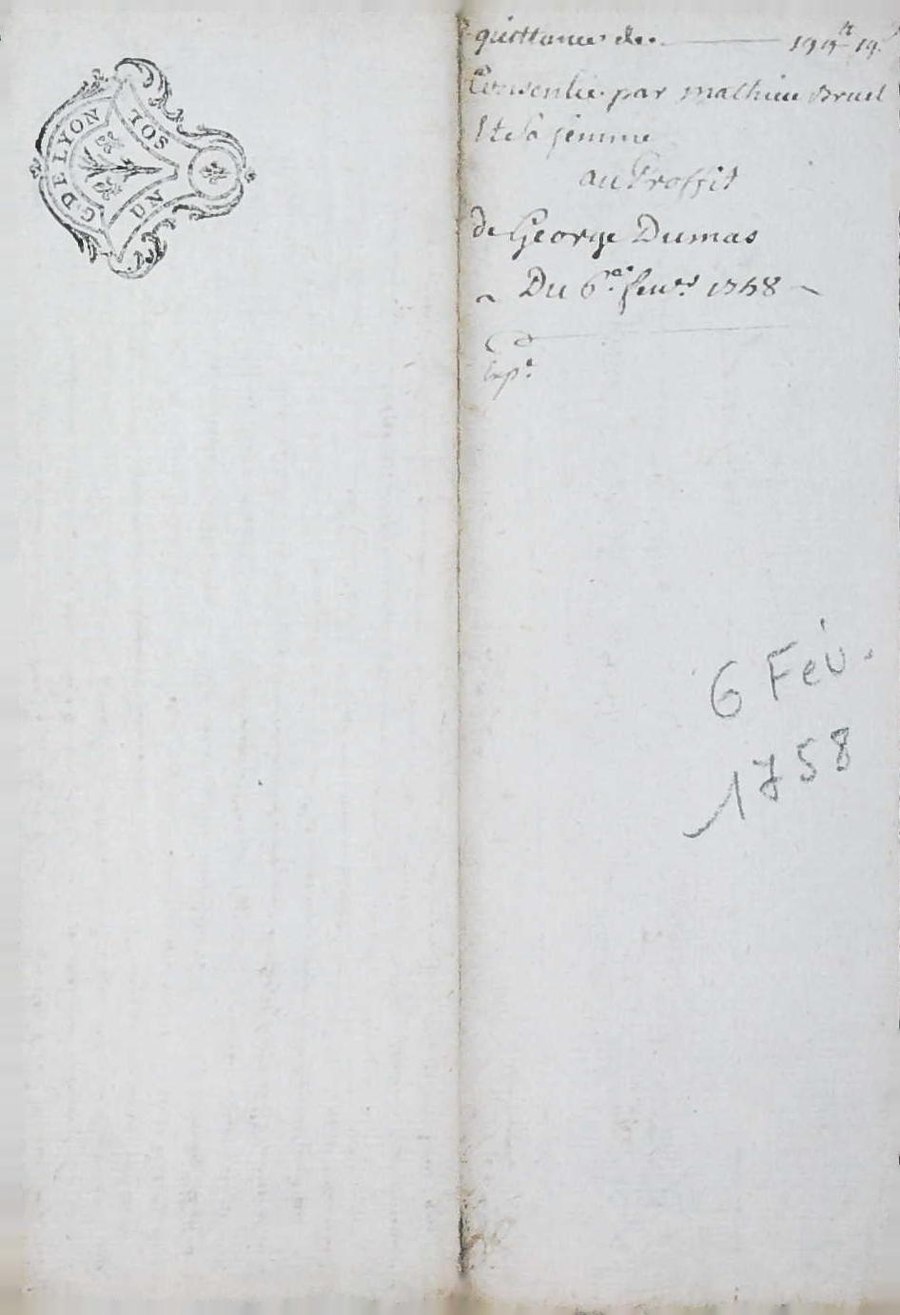 G. DE LYON
UN SOL
quittance de.
Consentie par mathieu Bruel
Et sa femme
au Proffit
de George Dumas
Du 6.e feu.er 1758
Exp.e
6 Fév.
1758